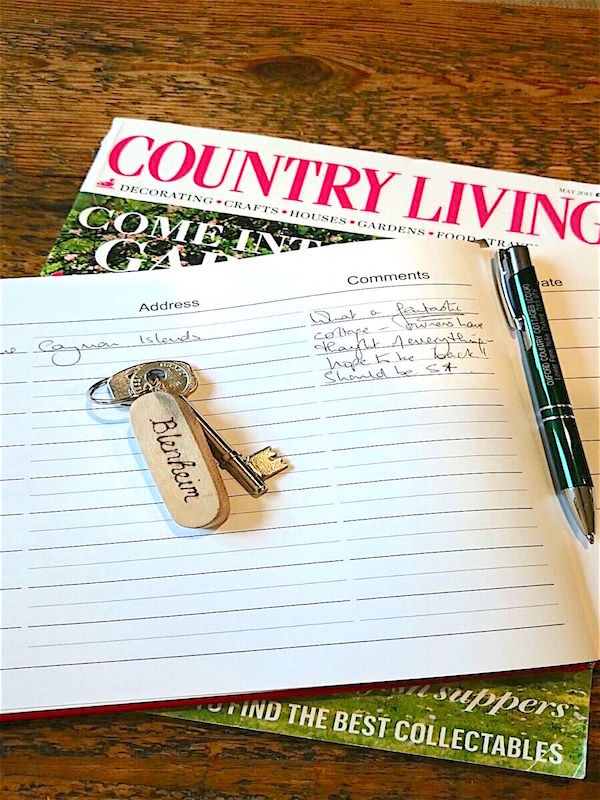 COUNTRY LIVING
MAY 2015
DECORATING • CRAFTS • HOUSES • GARDENS • FOOD • TRAVEL
COME INT
GAR
Address
Comments
Date
Cayman Islands
What a fantastic
cottage – owners have
thought of everything
hope to be back!!
Should be 5*.
Blenheim
OXFORD COUNTRY COTTAGES.CO.UK
suppers
TO FIND THE BEST COLLECTABLES